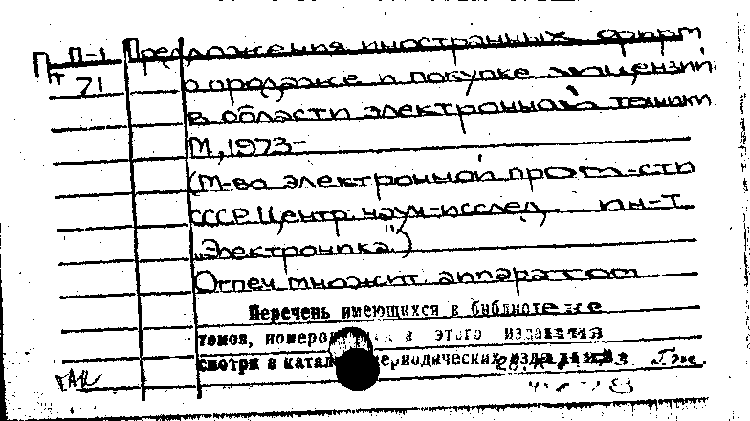 П П-1 Предложения иностранных фирм
т 71 о продаже и покупке лицензий
в области электронной техники
М, 1973-
(М-во электронной пром-сти
СССР. Центр. науч-исслед. ин-т
„Электроника")
Отпеч множит аппаратом
Перечень имеющихся в библиотеке
томов, номеров этого издания
смотри в каталоге периодических изданий